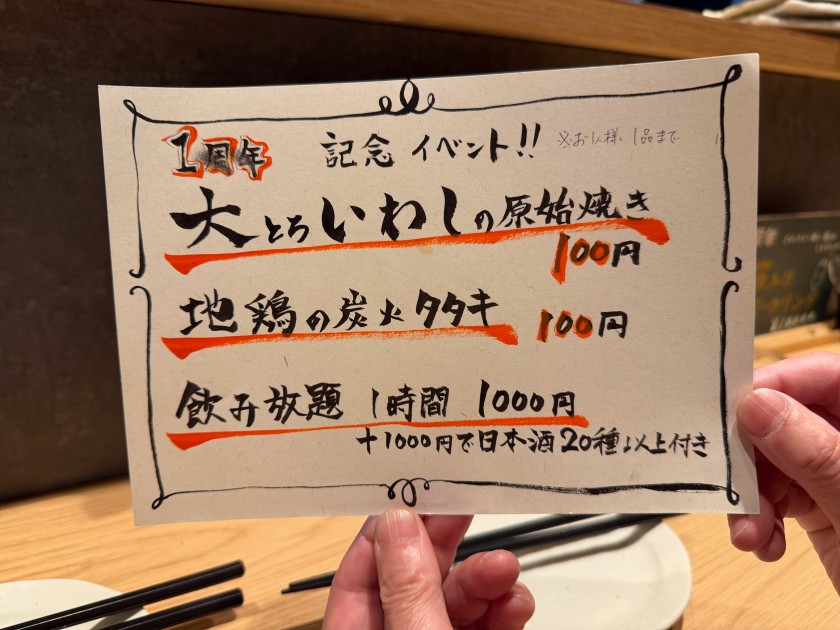 1周年 記念 イベント!! ※お1人様、1品まで
大とろいわしの原始焼き
100円
地鶏の炭火タタキ 100円
飲み放題 1時間 1000円
+1000円で日本酒20種以上付き